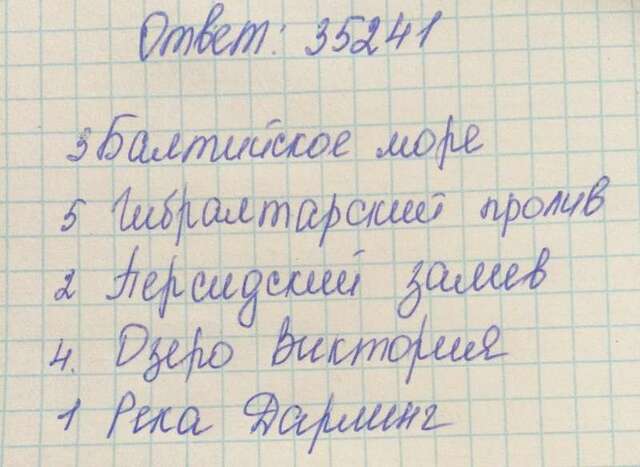 Ответ: 35241
3 Балтийское море
5 Гибралтарский пролив
2 Персидский залив
4. Озеро Виктория
1 Река Дарлинг